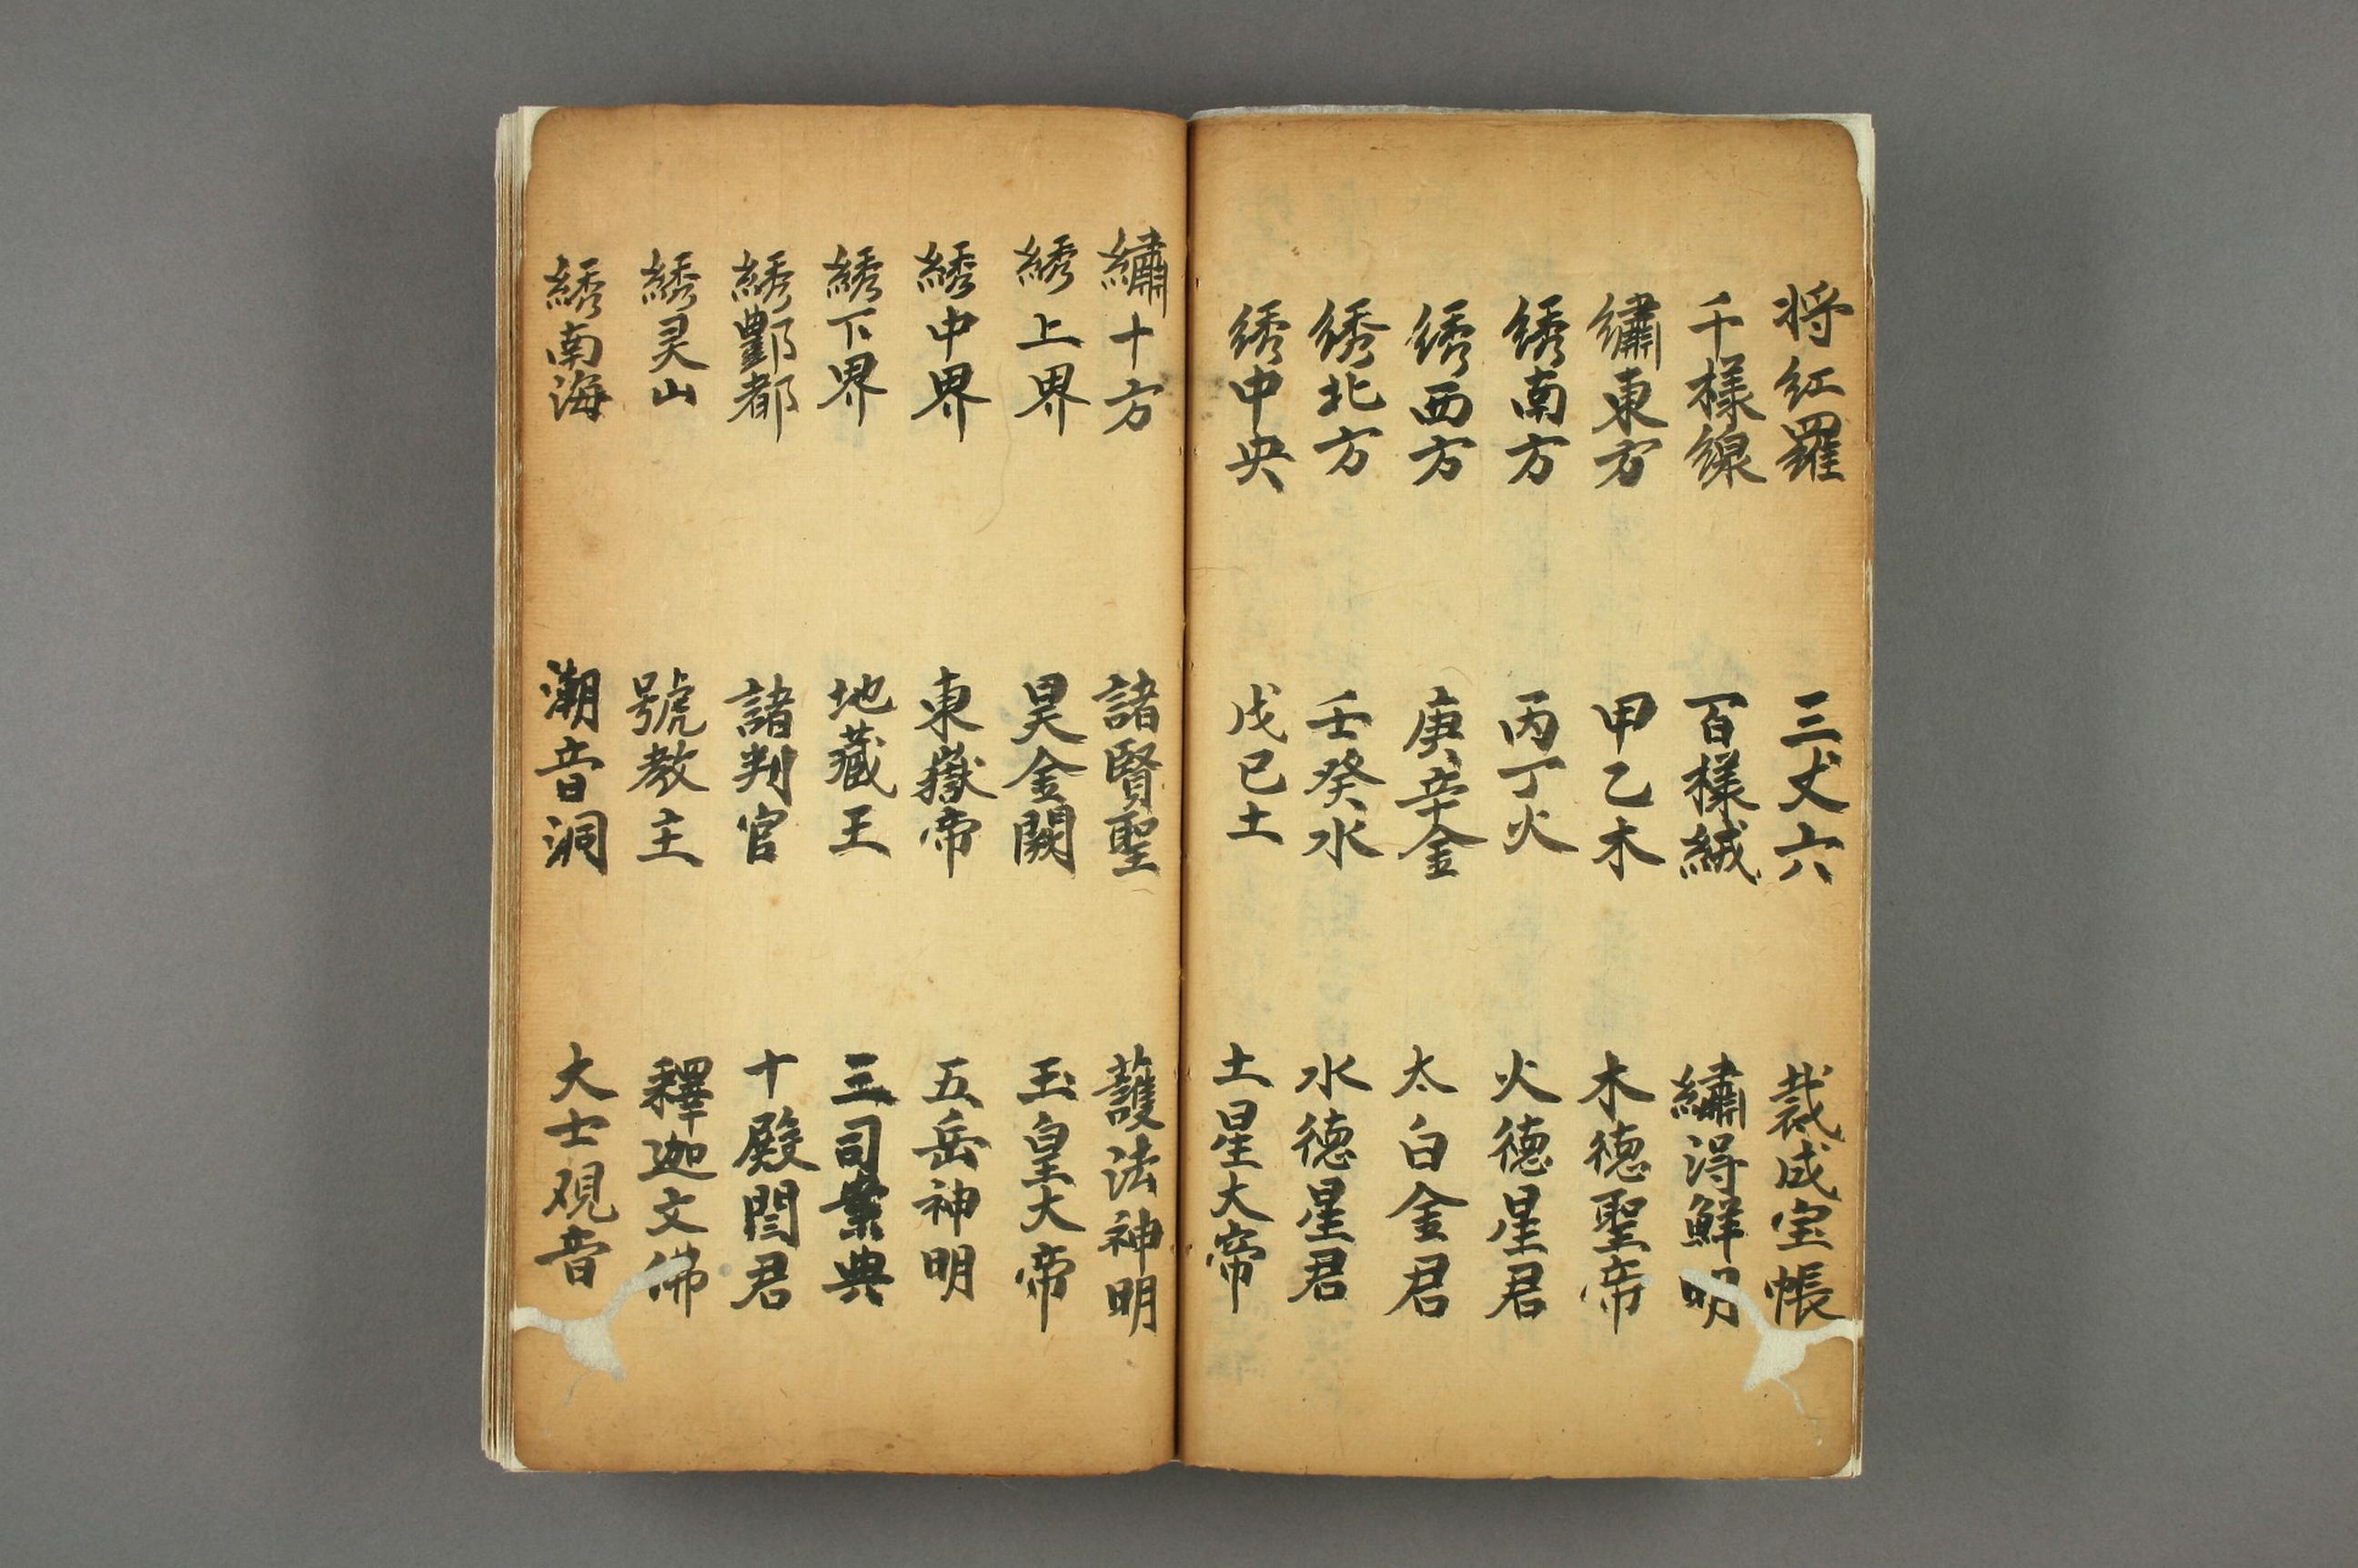 将紅羅　三丈六　裁成宝帳
千樣線　百樣絨　繡得鮮明
繡東方　甲乙木　木德聖帝
綉南方　丙丁火　火德星君
綉西方　庚辛金　太白金君
綉北方　壬癸水　水德星君
綉中央　戊己土　土星大帝
繡十方　諸賢聖　護法神明
綉上界　昊金闕　玉皇大帝
綉中界　東嶽帝　五岳神明
綉下界　地藏王　三司案典
綉酆都　諸判官　十殿閻君
綉灵山　號教主　釋迦文佛
綉南海　潮音洞　大士观音